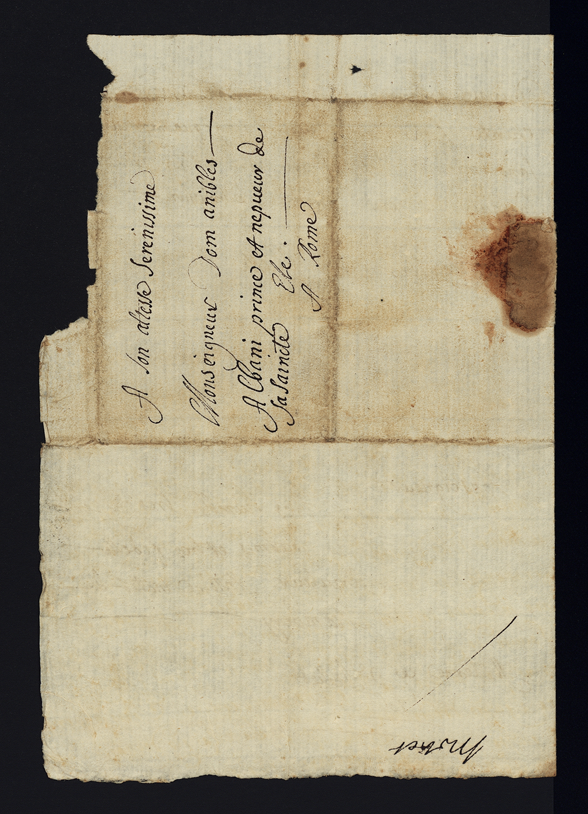 A son altesse serenissime
Monseigneur Dom anibles
Albani prince et nepueur de
sa sainteté Etc.
A Rome